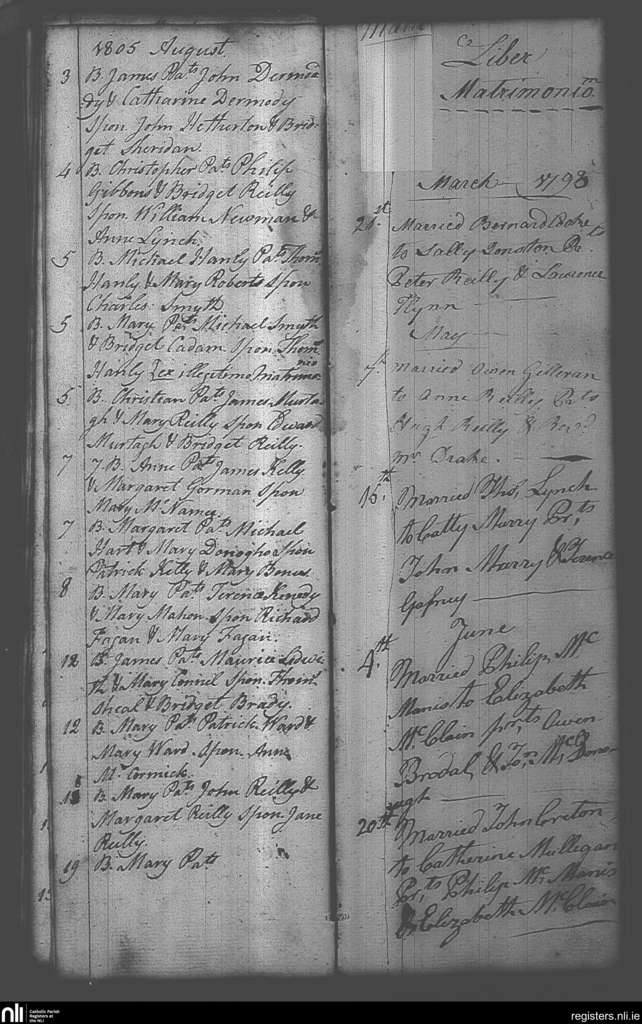 1805 August
3 B. James Pats John Dermo
dy & Catharine Dermody
Spon John Hetherton & Brid
get Sheridan.
4 B. Christopher Pats Philip
Gibbons & Bridget Reilly
Spon William Newman &
Anne Lynch.
5 B. Michael Hanly Pats Thoms
Hanly & Mary Roberts Spon
Charles Smyth
5 B. Mary Pats Michael Smyth
& Bridget Cadam Spon Thoms
Hanly [ex illegitimo matrimo
nio
5 B. Christian Pats James Murta
gh & Mary Reilly Spon Edward
Murtagh & Bridget Reilly.
7 7 B. Anne Pats James Kelly
& Margaret Gorman Spon
Mary McNamee
7 B. Margaret Pats Michael
Hart & Mary Donogho Spon
Patrick Kelly & Mary
8 B. Mary Pats Terence Kenedy
& Mary Mahon Spon Richard
Fagan & Mary Fagan.
12 B. James Pats Maurice Ledwi
th & Mary Connel Spon
Sheal & Bridget Brady.
12 B. Mary Pats Patrick Ward &
Mary Ward. Spon Anne
McCormick.
18 B. Mary Pats John Reilly &
Margaret Reilly Spon Jane
Reilly.
19 B. Mary Pats
Liber
Matrimonio
March 1798
Married Bernard Drake
to Sally Pts
Peter Reilly & Lawrence
Flynn
May
7. Married Owen Gilleran
to Anne Reilly Pats
Hugh Reilly &
Mr Drake.
15.th Married Thos, Lynch
to Catty Murry Pr,ts
John Murry & Terence
Gafney
June
4.th Married Philip Mc
Manis to Elizabeth
McClain pr,ts Owen
Brodal, & McDono
ugh
20th Married John Creton
to Catherine Mullegan
Pr,ts Philip McManis
& Elizabeth McClain
nli Catholic Parish
Registers at
the NLI
registers.nli.ie